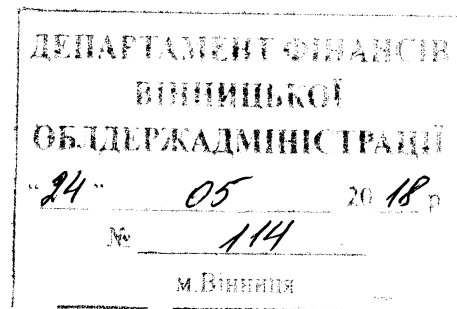 ДЕПАРТАМЕНТ ФІНАНСІВ
ВІННИЦЬКОЇ
ОБЛДЕРЖАДМІНІСТРАЦІЇ
"24" 05 2018 р
№ 114
м.Вінниця